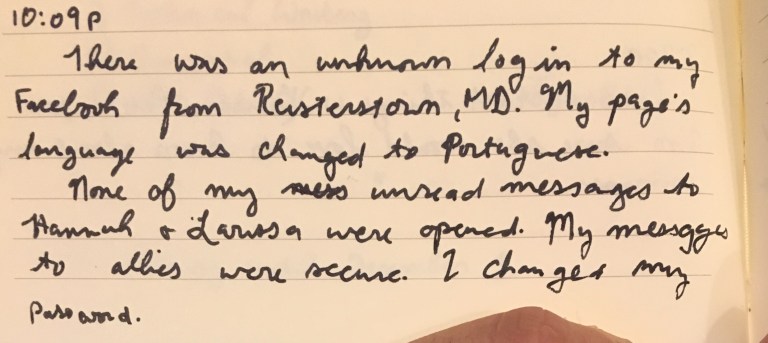 10:09P
There was an unknown log in to my
Facebook from Reisterstown, MD. My page's
language was changed to Portuguese.
None of my mess unread messages to
Hannah & Larissa were opened. My messages
to allies were secure. I changed my
password.